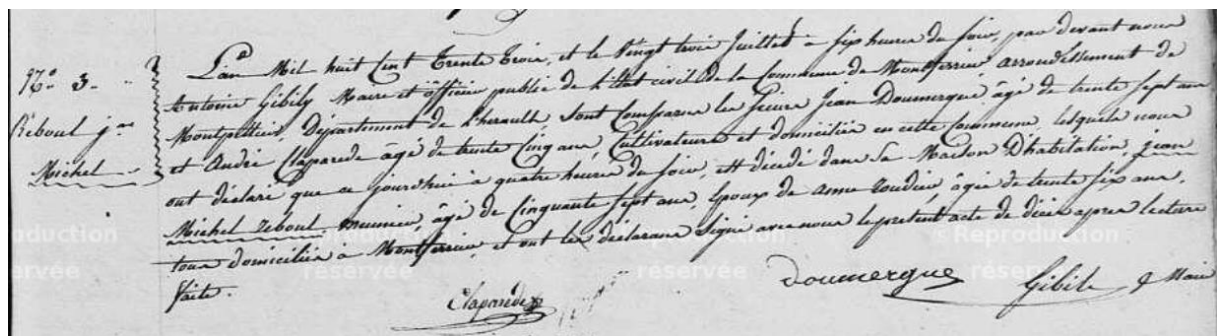 N.o 3.
Reboul j.n
Michel
L'an Mil huit Cent Trente Trois, et le Vingt trois Juillet à six heures du soir, par devant nous
Antoine Gibily Maire et officier public de l'état civil de la Commune de Montferrier arrondissement de
Montpellier, Département de l'herault sont Comparus les sieurs Jean Doumergue âgé de trente sept ans
et André Claparede âgé de trente Cinq ans, Cultivateurs et domiciliés en cette Commune, lesquels nous
ont déclaré que ce jourd'hui à quatre heures du soir, est décédé dans sa Maison D'habitation, jean
Michel reboul meunier âgé de Cinquante sept ans, Epoux de anne âgée de trente six ans,
tous domiciliés à Montferrier, et ont les déclarans signé avec nous le présent acte de décès après lecture
faite.
Claparede
Doumergue
Gibily Maire
Reproduction réservée
réservée
réservée
©Reproduction réservée